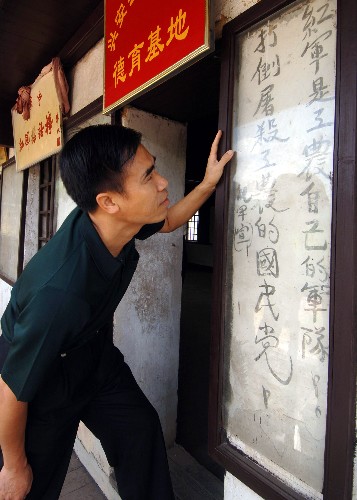 德育基地
紅軍是工農自己的軍隊！
打倒屠殺工農的國民黨！
紅軍宣